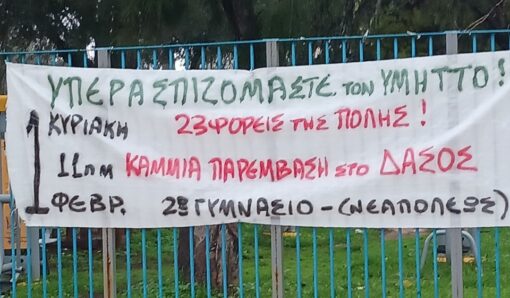 ΥΠΕΡΑΣΠΙΖΟΜΑΣΤΕ ΤΟΝ ΥΜΗΤΤΟ!
ΚΥΡΙΑΚΗ 23 ΦΟΡΕΙΣ ΤΗΣ ΠΟΛΗΣ!
1 11πμ ΚΑΜΜΙΑ ΠΑΡΕΜΒΑΣΗ ΣΤΟ ΔΑΣΟΣ
ΦΕΒΡ. 2ο ΓΥΜΝΑΣΙΟ - (ΝΕΑΠΟΛΕΩΣ)